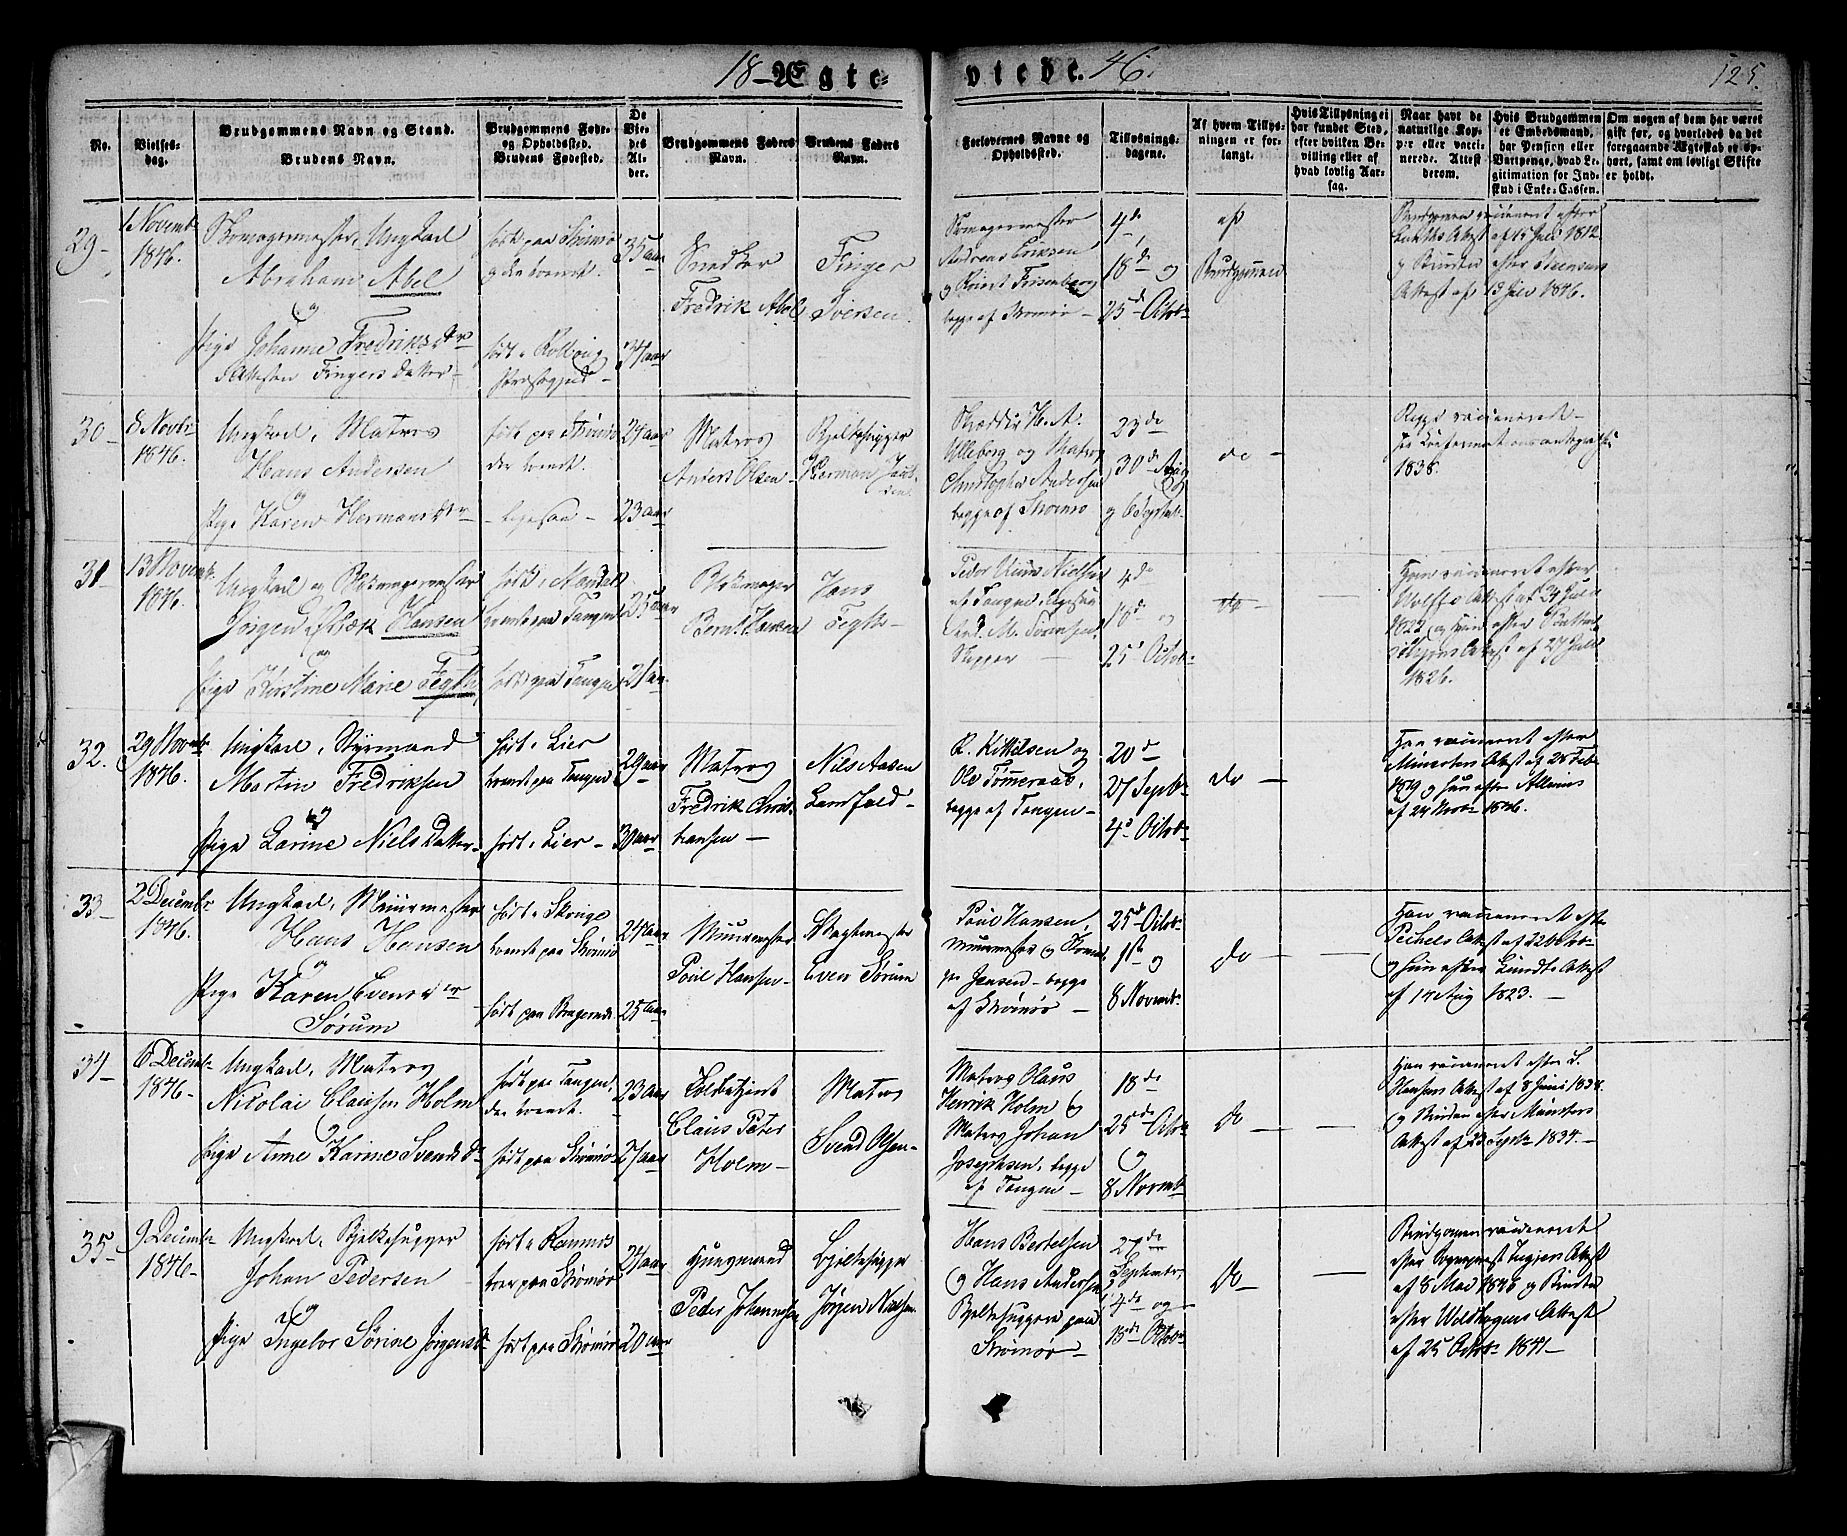 18 Ægte-
viede. 46.
125.
No.
Vielses-
dag.
Brudgommens Navn og Stand.
Brudens Navn.
Brudgommens Føde-
og Opholdssted.
Brudens Fødested.
De
Vie-
des
Al-
der.
Brudgommens Faders
Navn.
Brudens Faders
Navn.
Forlovernes Navne og
Opholdssted.
Tillysnings-
dagene.
Af hvem Tillys-
ningen er for-
langt.
Hvis Tillysning ei
har fundet Sted,
efter hvilken Be-
villing eller af
hvad lovlig Aar-
sag.
Naar havt de
naturlige Kop-
per eller vacci-
nerede. Attest
derom.
Hvis Brudgommen
er Embedsmand,
har Pension eller
Vartpenge, hvad Le-
gitimation for Ind-
skud i Enke-Cassen.
Om nogen af dem har været
gift før, og hvorledes da det
foregaaende Ægteskab er op-
hørt, samt om lovligt Skifte
er holdt.
29
1 Novembr
1846.
Skomagermester, Ungkarl
Abraham Abel
og
Pige Johanne Fredriks
Fingers Datter
født paa Strømsø
35 aar
34 aar
Snedker
Fredrik Abel
Finger
Iversen
Skomagermester
Andreas Eriksen
begge af Strømsø
4de,
18de og
25de Octbr
af
Brudgummen
af 15 Juli 1812.
Attest af 13 Juli 1846.
30
8 Novbr
1846.
Ungkarl, Matros
Hans Andersen
og
Pige Karen Hermansdtr
født paa Strømsø
der boende.
ligesaa
24 aar
23 aar
Matros
Anders Olsen
Bjelkehugger
Herman
Skredder H. A.
Ulleborg og Matros
Christopher Andersen
begge af Strømsø
23de
30de Aug
og 6 Septbr
do
Begge vaccineret
1838.
31
13 Novembr
1846.
Ungkarl
Jørgen Hansen
og
Pige Kirstine Marie Fegth
boende paa Tangen
født paa Tangen
25 aar
21 aar
Bernt Hansen
Hans
Fegth
Peder Nielsen
af Tangen
M. Svensen
Skipper
4de
18de og
25de Octbr
do
Han vaccineret efter
Wolffs Attest af
1822 og hun efter
Attest af 27 Juli
1826.
32.
29 Novbr
1846.
Ungkarl, Styrmand
Martin Fredriksen
og
Pige Larine Niels Datter
født i Lier
boende paa Tangen
født i Lier
29 aar
30 aar
Matros
Fredrik Chris-
tiansen
Niels Aasen
Landfald
R. Kittelsen og
Ole Tømeraas,
begge af Tangen
20de
27 Septbr
4de Octbr
do
Han vaccineret efter
Münsters Attest af 28 Feb
1819 og hun efter
af 24 Novbr 1846.
33
2 Decembr
1846.
Ungkarl, Muurmester
Hans Hansen
og
Pige Karen Evensdtr
Sørum
født i Skouge
boende paa Strømsø
født paa Bragernes
24 aar
25 aar
Muurmester
Poul Hansen
Slagtmester
Even Sørum
Poul Hansen,
Muurmester og
Jensen begge
af Strømsø
25de Octbr
1ste og
8 Novembr
do
Han vaccineret efter
Pechels Attest af 22 Octbr
og hun efter Lundts Attest
af 14 Aug 1823.
34
6 Decembr
1846.
Ungkarl, Matros
Nicolai Clausen Holm
og
Pige Anne Karine Svendsdr
født paa Tangen,
der boende.
født paa Strømsø
23 aar
21 aar
Toldbetjent
Claus Peter
Holm
Matros
Svend Olsen
Matros Olaus
Henrik Holm og
Matros Johan
Josephsen, begge
af Tangen
18de
25de Octbr
og
8 Novembr
do
Han vaccineret efter L.
Hansens Attest af 8 Juni 1838.
og Bruden efter Münsters
Attest af 23 Septbr 1834.
35
9 Decembr
1846
Ungkarl, Bjelkehugger
Johan Pedersen
og
Pige Ingebor Sørine Jørgensdr
født i Ramnes
boer paa Strømsø
født paa Strømsø
24 aar
20 aar
Huusmand
Peder Johannesen
Bjelkehugger
Jørgen Nielsen
Hans Bertelsen
og Hans Andersen
Bjelkehuggere paa
Strømsø
27de
September,
4de og
18de Octbr
do
Brudgommen vaccineret
efter Sogneprest Ingiers Attest
af 8 Mai 1846 og Bruden
efter Wildhagens Attest
af 25 Octbr 1841